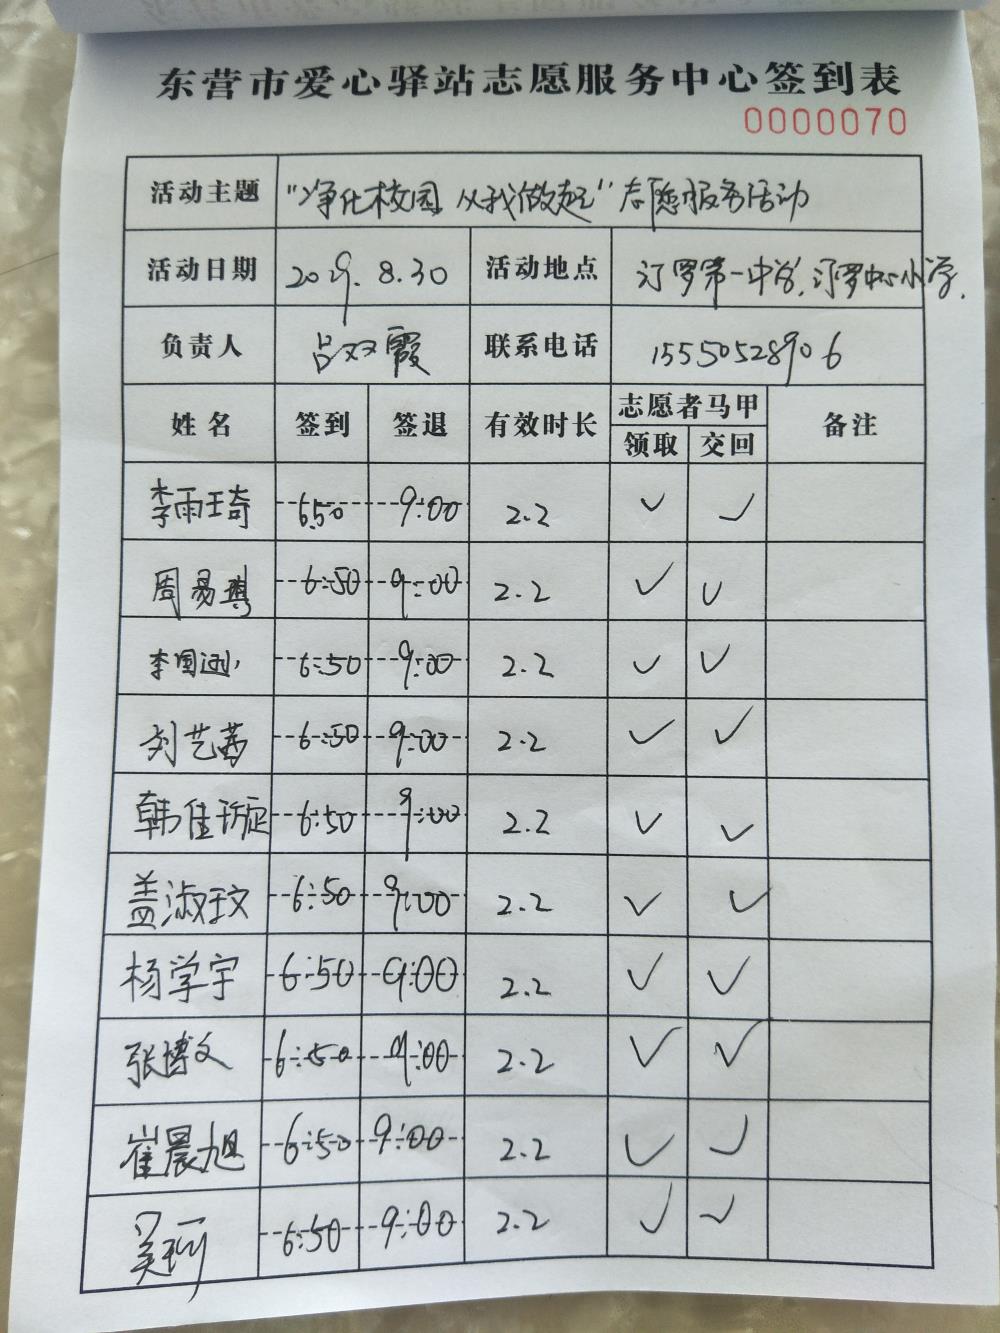 东营市爱心驿站志愿服务中心签到表
0000070
活动主题 “净化校园 从我做起”志愿服务活动
活动日期 2019.8.30 活动地点 汀罗第一中学.汀罗中心小学.
负责人 吕双霞 联系电话 15550528906
姓名 签到 签退 有效时长 志愿者马甲 备注
领取 交回
李雨琦 6:50 9:00 2.2 ✓ ✓
周易 6:50 9:00 2.2 ✓ ✓
李国 6:50 9:00 2.2 ✓ ✓
刘艺茜 6:50 9:00 2.2 ✓ ✓
韩佳璇 6:50 9:00 2.2 ✓ ✓
盖淑玟 6:50 9:00 2.2 ✓ ✓
杨学宇 6:50 9:00 2.2 ✓ ✓
张博文 6:50 9:00 2.2 ✓ ✓
崔晨旭 6:50 9:00 2.2 ✓ ✓
吴珂 6:50 9:00 2.2 ✓ ✓